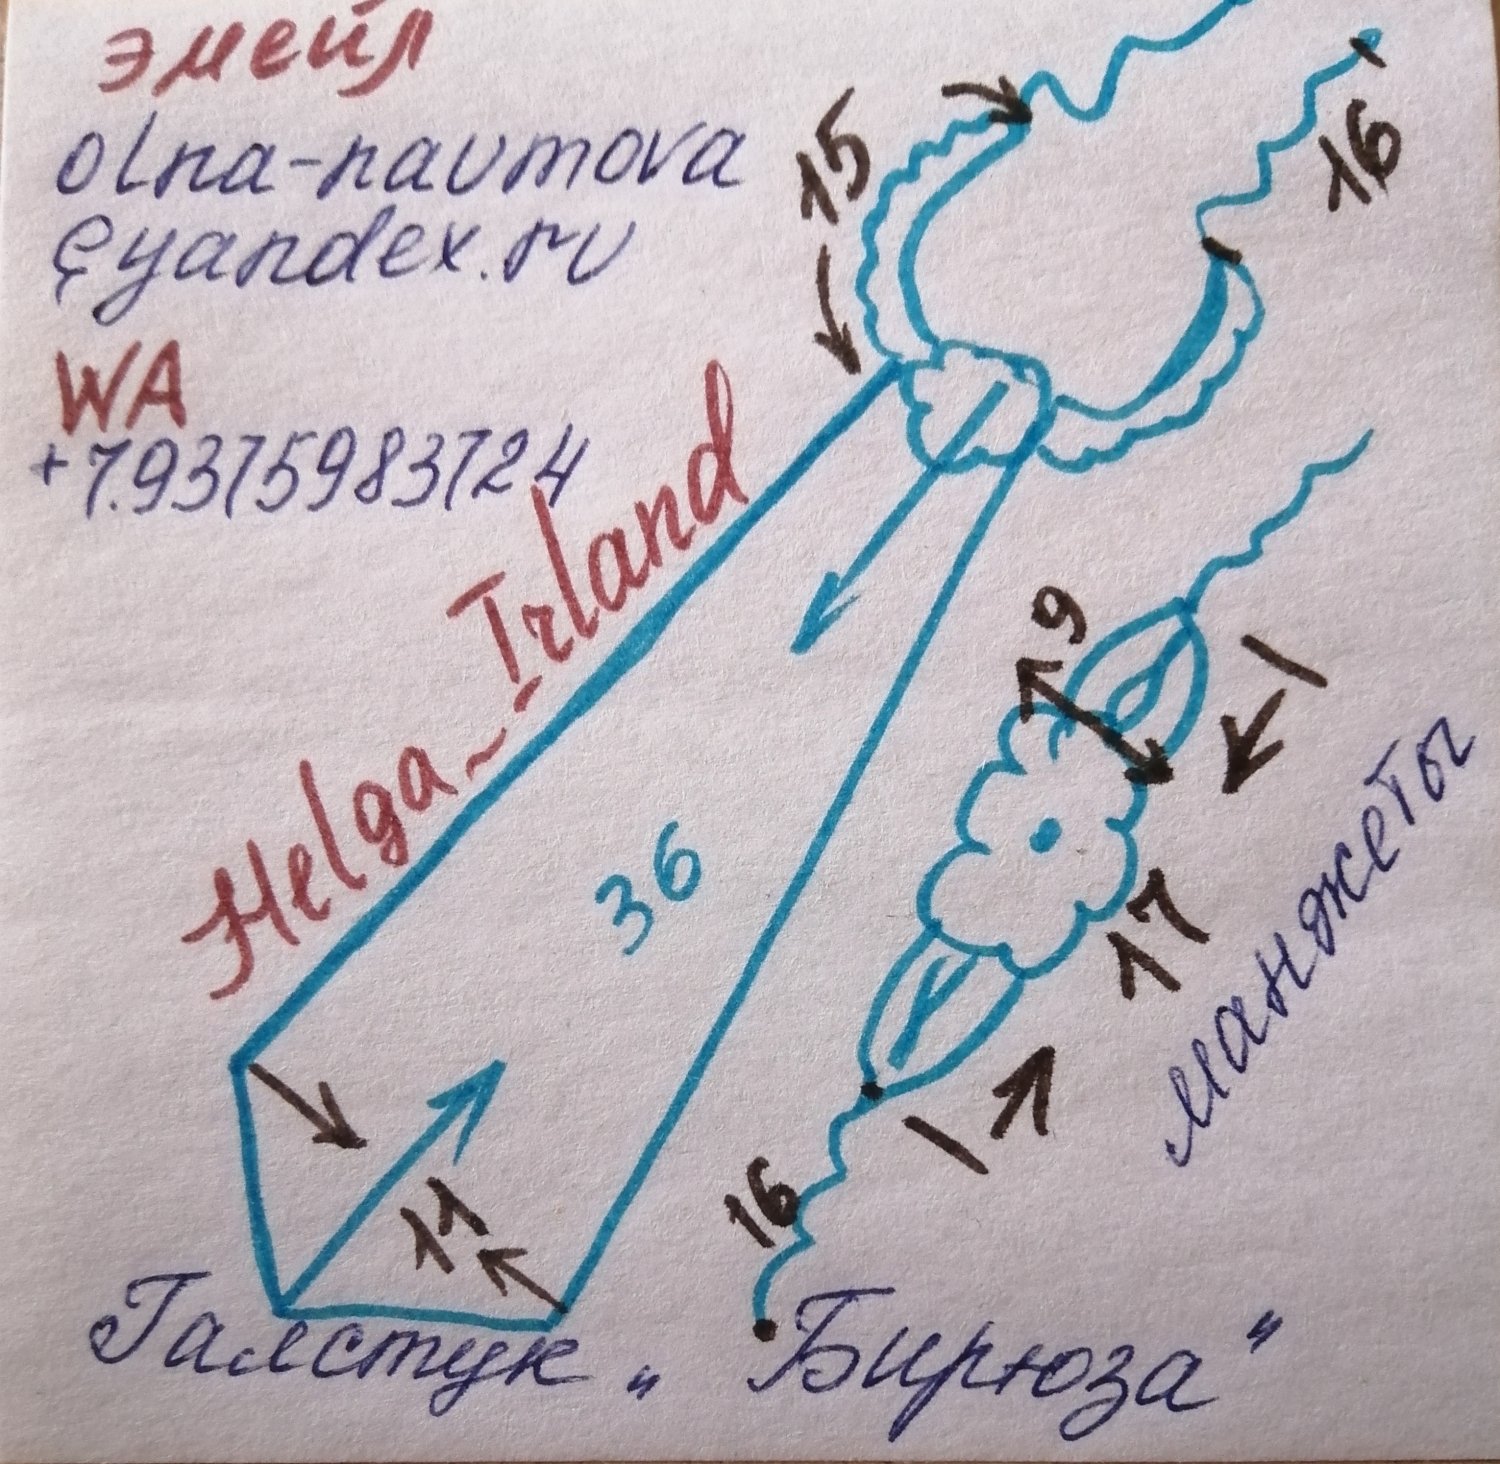 эмейл
olna-naumova
@yandex.ru
WA
+7.9375983724
Helga_Irland
15
16
36
11
19
1
17
1
16
манжеты
Галстук „Бирюза"